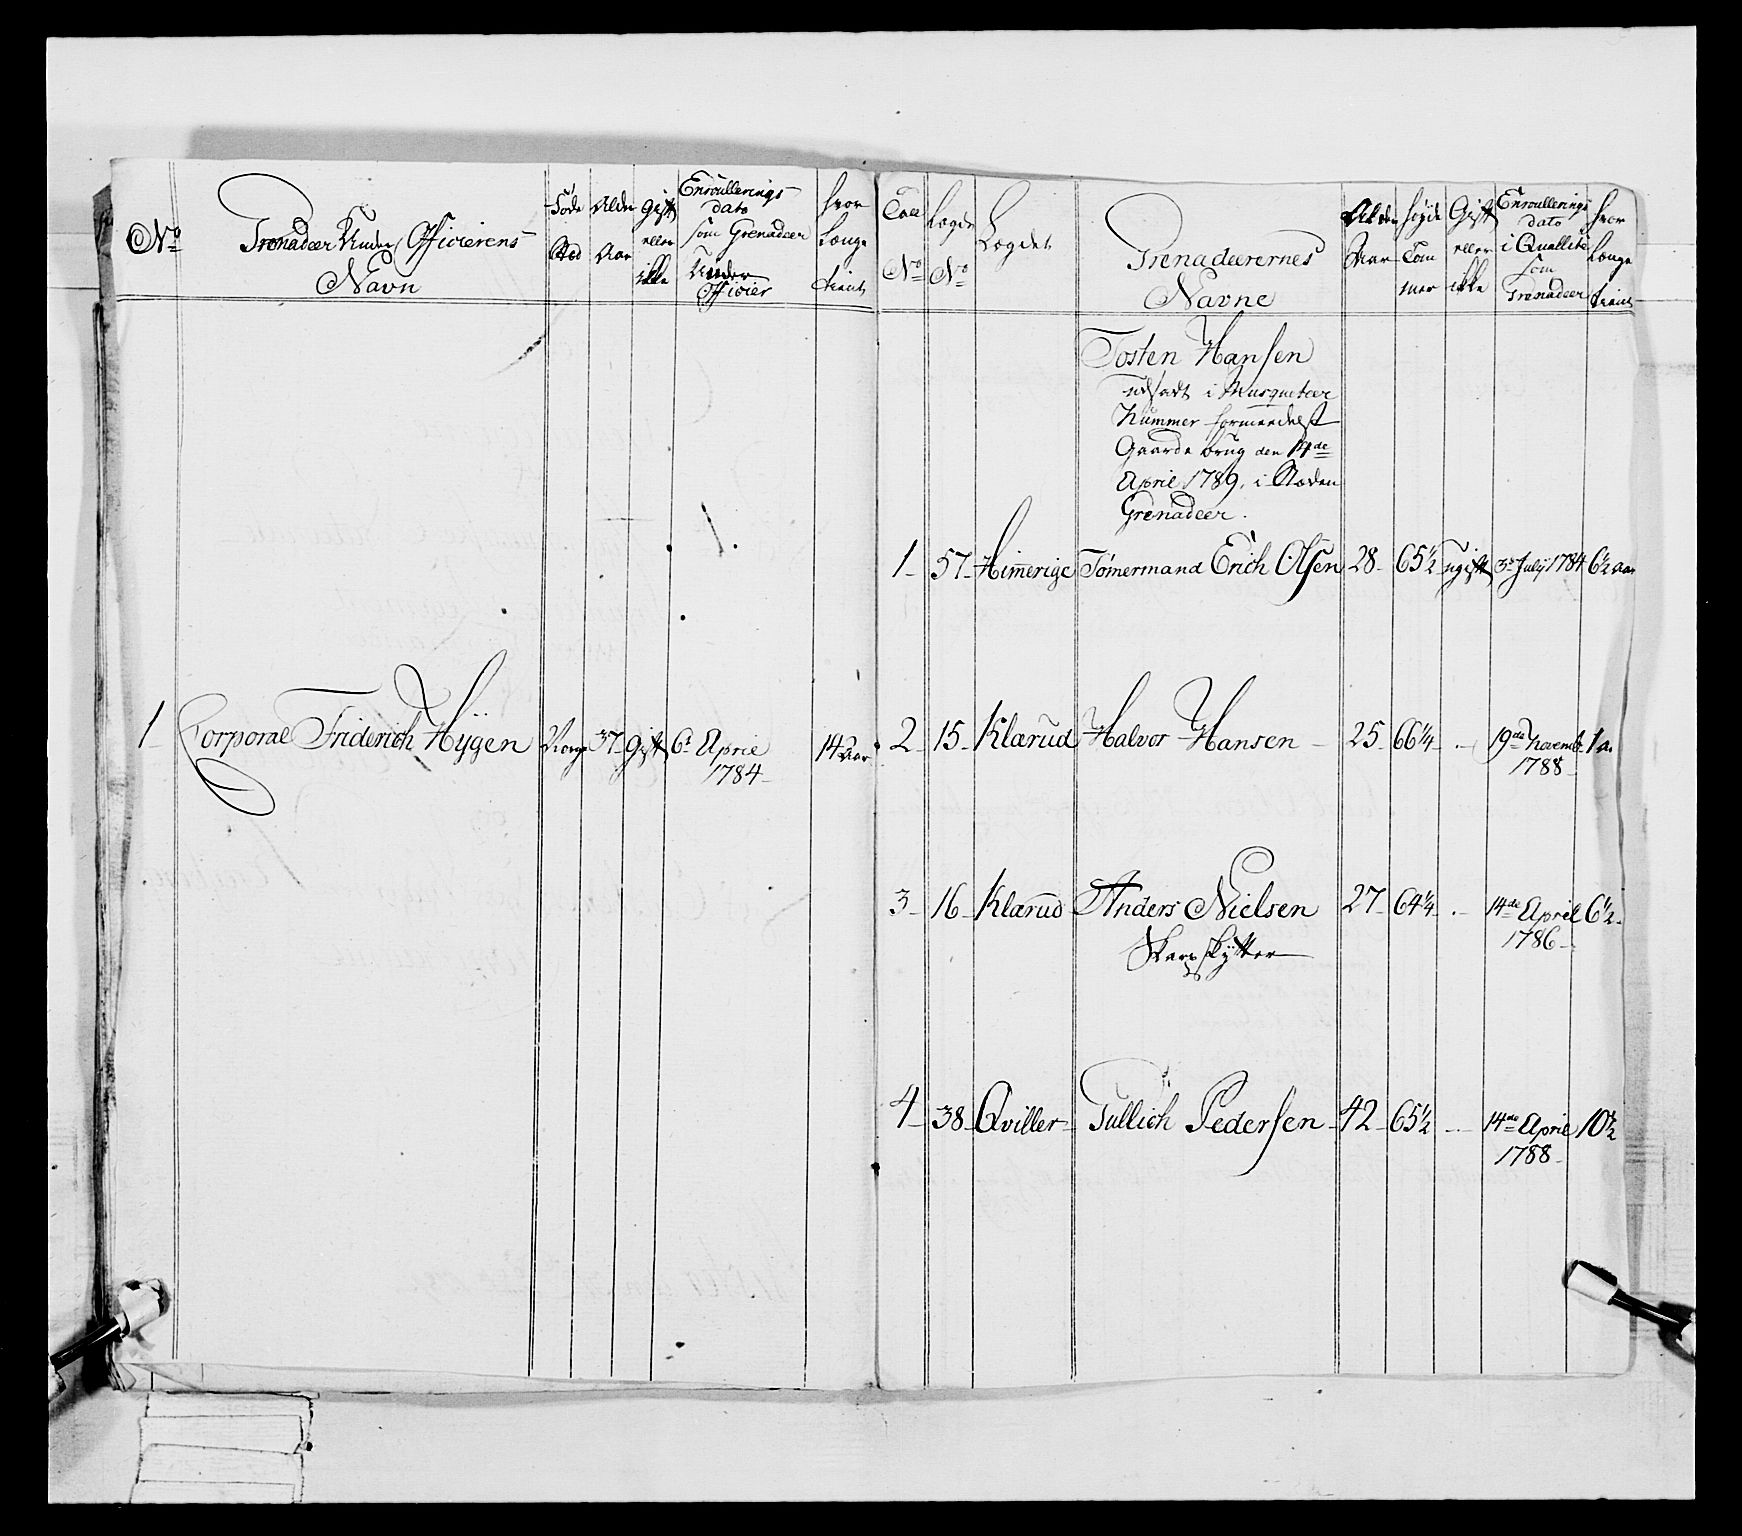 No
Grenadeer Under Officierens
Navn
Føde
Sted
Alder
Aar
Gift
eller
ikke
Enroullerings
dato
som Grenadeer
Under
Officier
hvor
længe
tient
1 Corporal Friderich Hÿgen Norge 37 Gift 6t April
1784
14 Aar
No
Lægde
No
Lægdet
Grenadeerernes
Navne
Alder
Aar
Høyde
Tom
mer
Gift
eller
ikke
Enroullerings
dato
i Qualite
som
Grenadeer
hvor
længe
tient
Tosten Hansen
udsadt i Musqueteer
Nummer formedelst
Gaards brug den 14de
April 1789, i Steden
Grenadeer.
1 57 Himerige Tømermand Erich Olsen 28 65½ ugift 3t Julÿ 1784 6½ aar
2 15 Klærud Halvor Hansen 25 66¼ - 19de Novemb. 1 a
1788
3 16 Klærud Anders Nielsen 27 64¼ - 14de April 6½
1786
Skarpskÿtter
4 38 Qviller Tullich Pedersen 42 65½ - 14de April 10½
1788